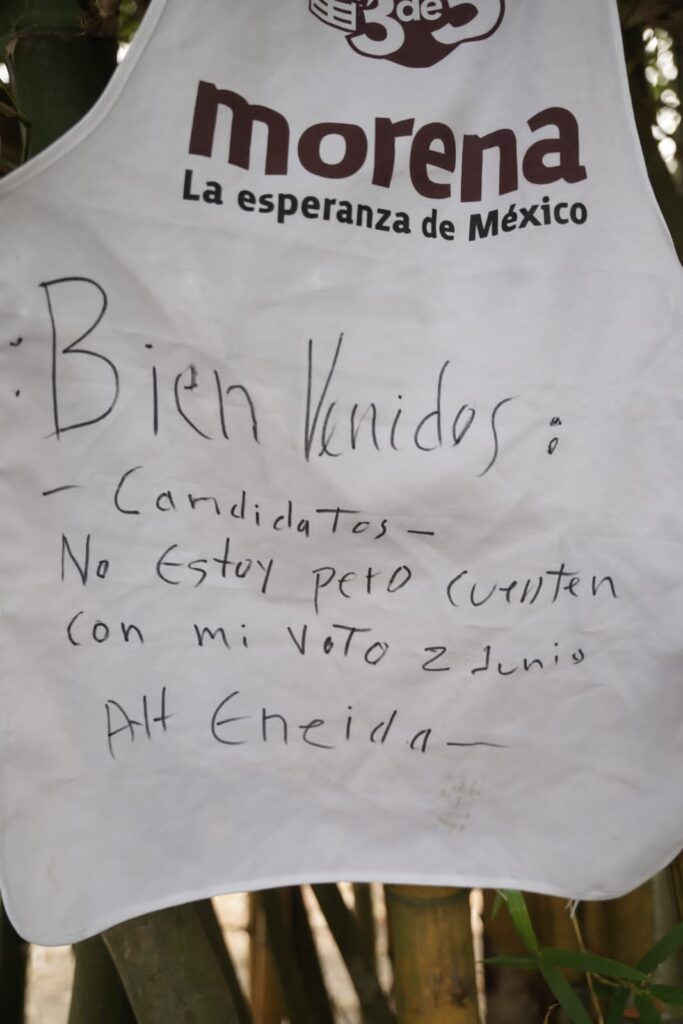 3 de 3
morena
La esperanza de México
: Bien Venidos :
- Candidatos -
No Estoy pero cuenten
con mi voto 2 Junio
Att Eneida -